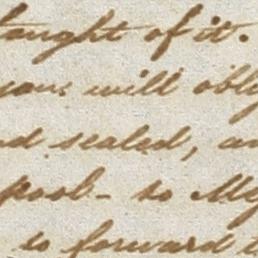 taught of it.
you will obl
d sealed, an
pool - to My
to forward t